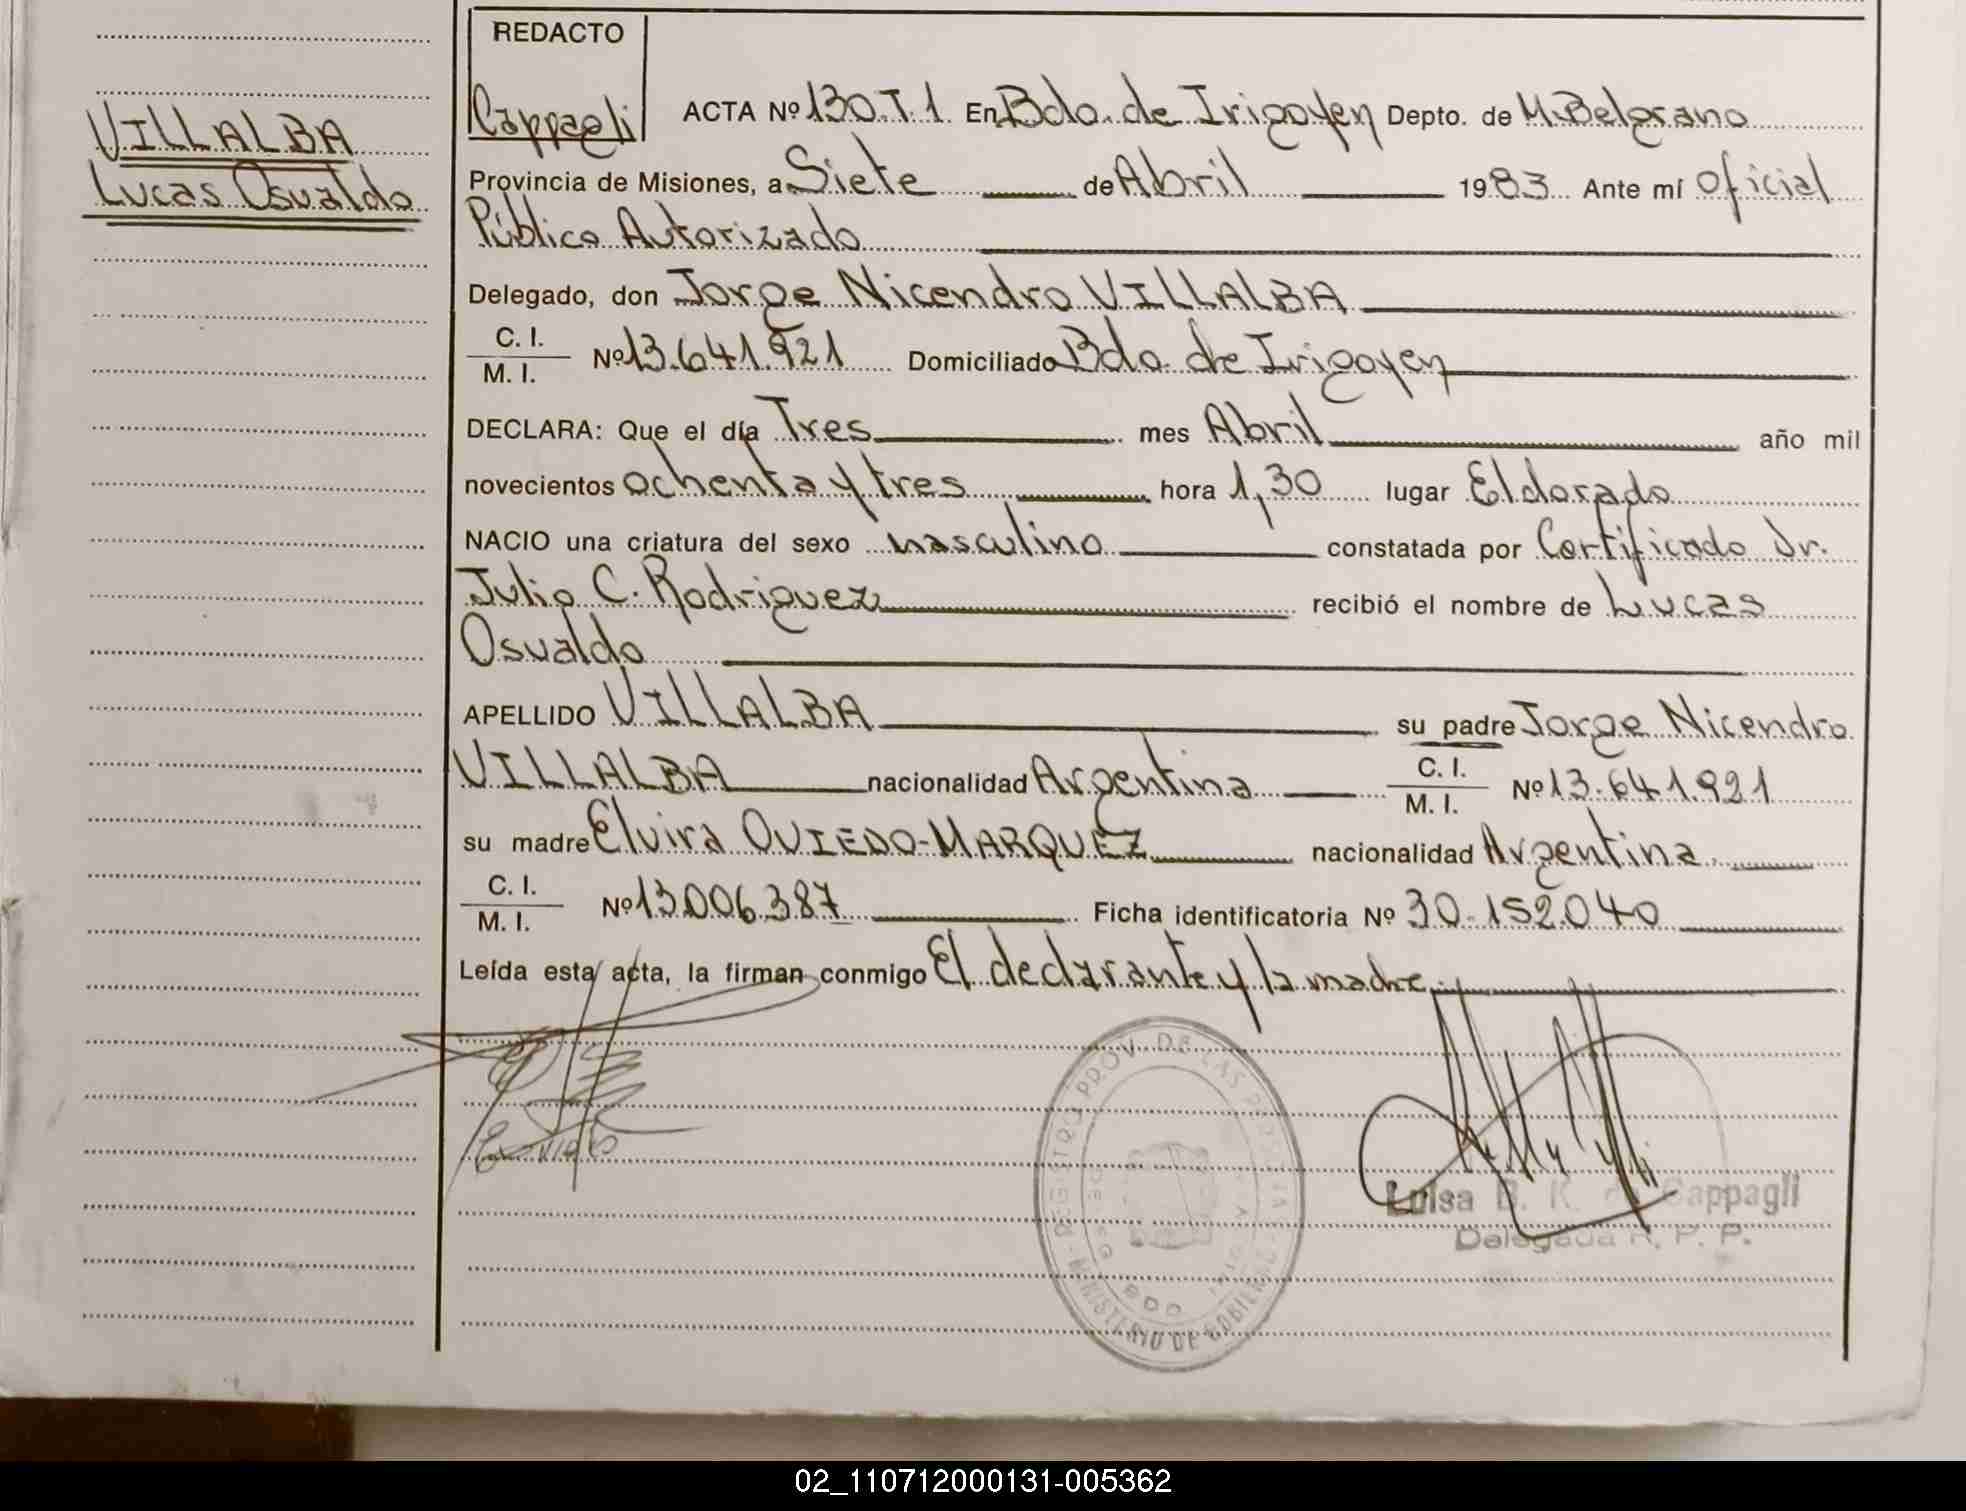 REDACTO
VILLALBA
Lucas Osvaldo
Cappagli ACTA Nº 130.T.1 En Bdo. de Irigoyen Depto. de M. Belgrano
Provincia de Misiones, a Siete de Abril 1983 Ante mí Oficial
Público Autorizado
Delegado, don Jorge Nicendro VILLALBA
C. I.
M. I. Nº 13.641.921 Domiciliado Bdo. de Irigoyen
DECLARA: Que el día Tres mes Abril año mil
novecientos ochenta y tres hora 1,30 lugar Eldorado
NACIO una criatura del sexo masculino constatada por Certificado Dr.
Julio C. Rodriguez recibió el nombre de Lucas
Osvaldo
APELLIDO VILLALBA su padre Jorge Nicendro
VILLALBA nacionalidad Argentina C. I. M. I. Nº 13.641.921
su madre Elvira OVIEDO-MARQUEZ nacionalidad Argentina
C. I.
M. I. Nº 13.006.387 Ficha identificatoria Nº 30.152.040
Leída esta acta, la firman conmigo El declarante y la madre
Luisa B. K. de Cappagli
Delegada R. P. P.
REGISTRO PROV. DE LAS PERSONAS
MINISTERIO DE GOBIERNO
02_110712000131-005362